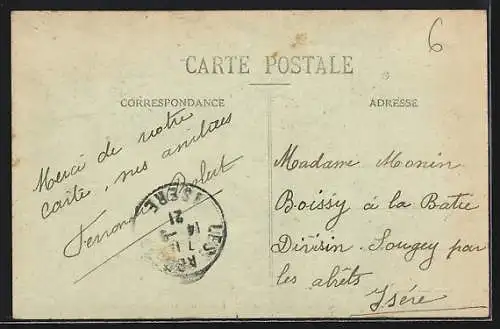 6
CARTE POSTALE
CORRESPONDANCE
ADRESSE
Merci de votre
carte, mes amitiés
Robert
Madame Monin
Boissy à la Batie
Divisin. Sougey par
les abrêts
Isère
LES
ISERE
14
21